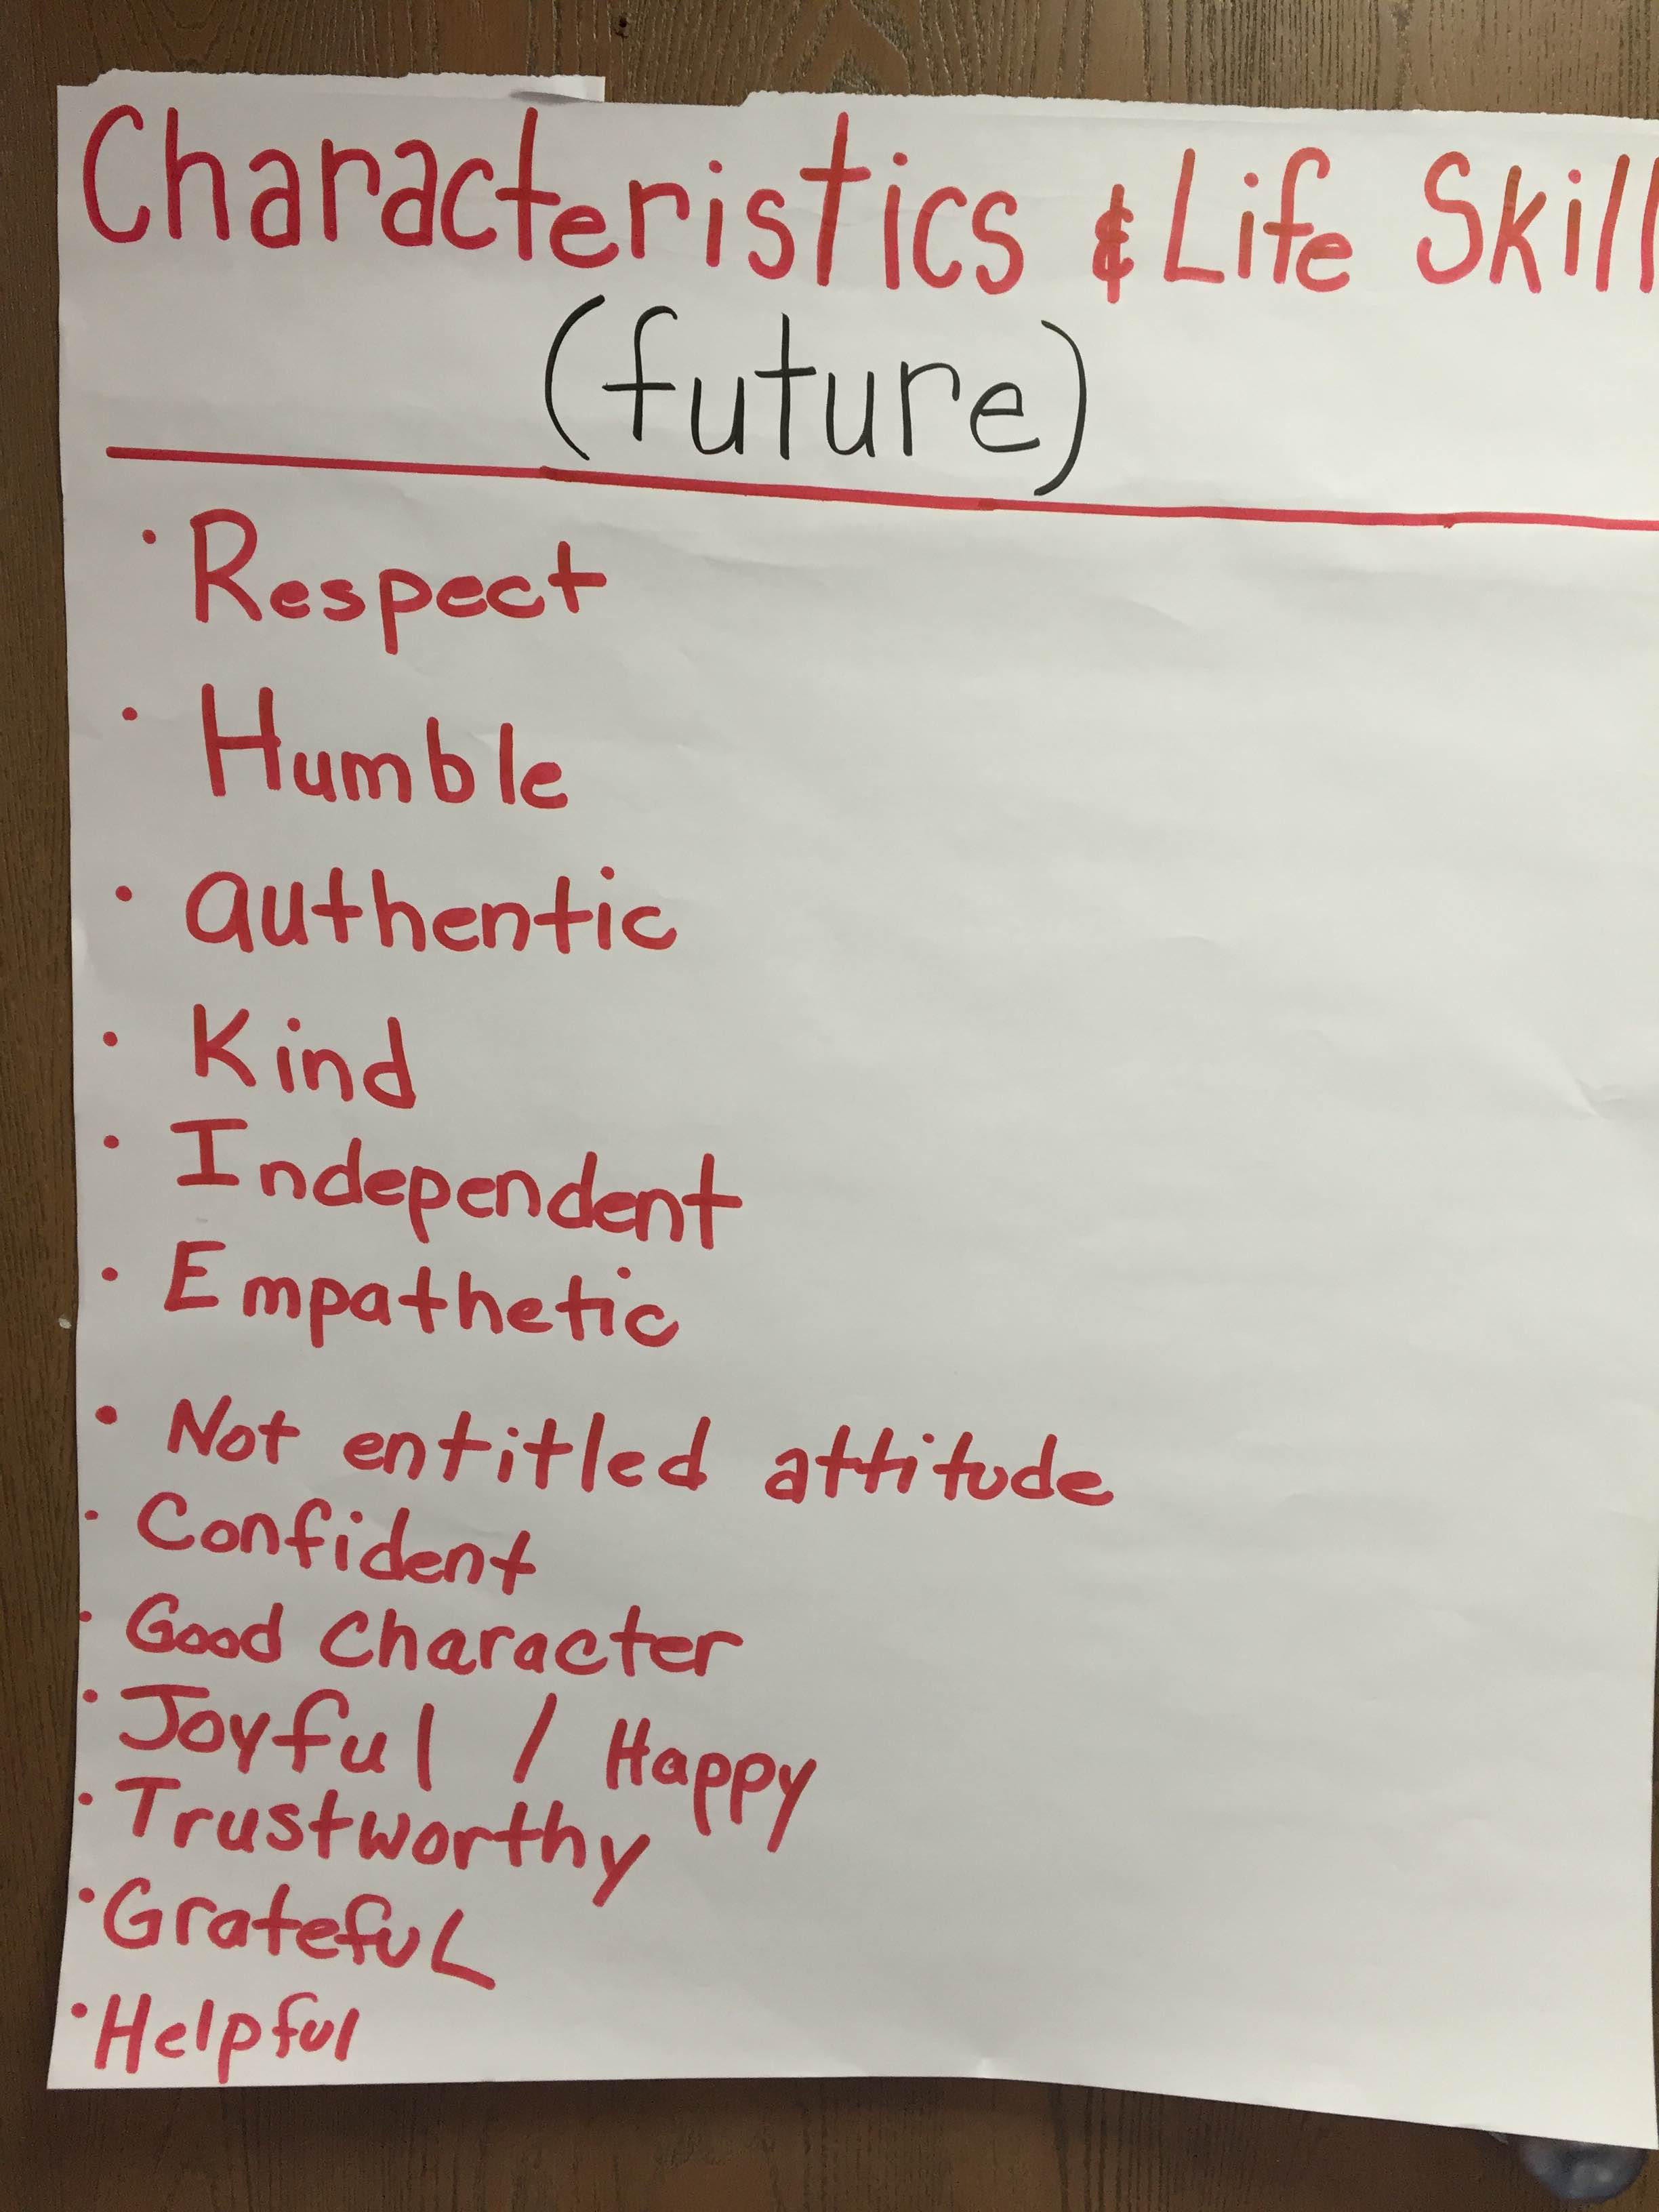 Characteristics & Life Skill
(future)
· Respect
· Humble
· authentic
· Kind
· Independent
· Empathetic
· Not entitled attitude
· Confident
· Good Character
· Joyful / Happy
· Trustworthy
· Grateful
· Helpful